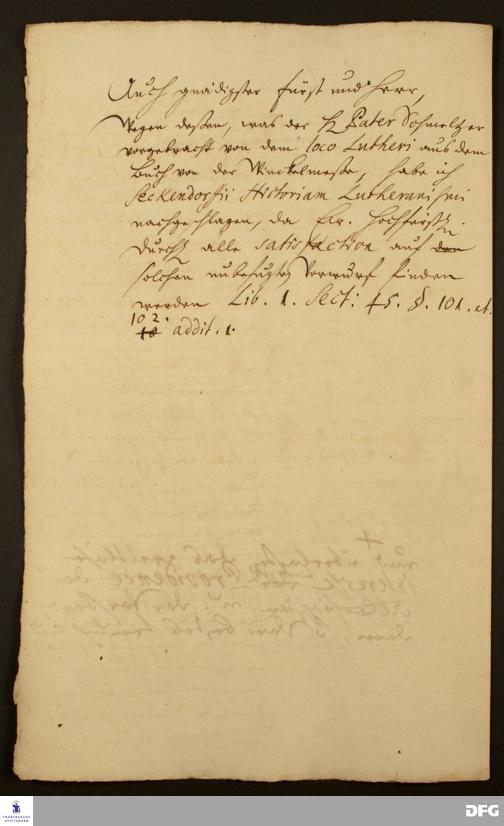 Auch gnädigster Fürst und Herr,
Wegen deßen, was der H. Pater Schmeltzer
vorgebracht von dem loco Lutheri aus dem
Buch von der Winckelmeße, habe ich
Seckendorffii Historiam Lutheranismi
nachgeschlagen, da Ew. Hochfürstl.
Durchl. alle satisfaction auf den
solchen unbefugten Vorwurf finden
werden Lib. 1. Sect: 45. §. 101. et.
102.
addit. 1.
FRANCKESCHE
STIFTUNGEN
DFG